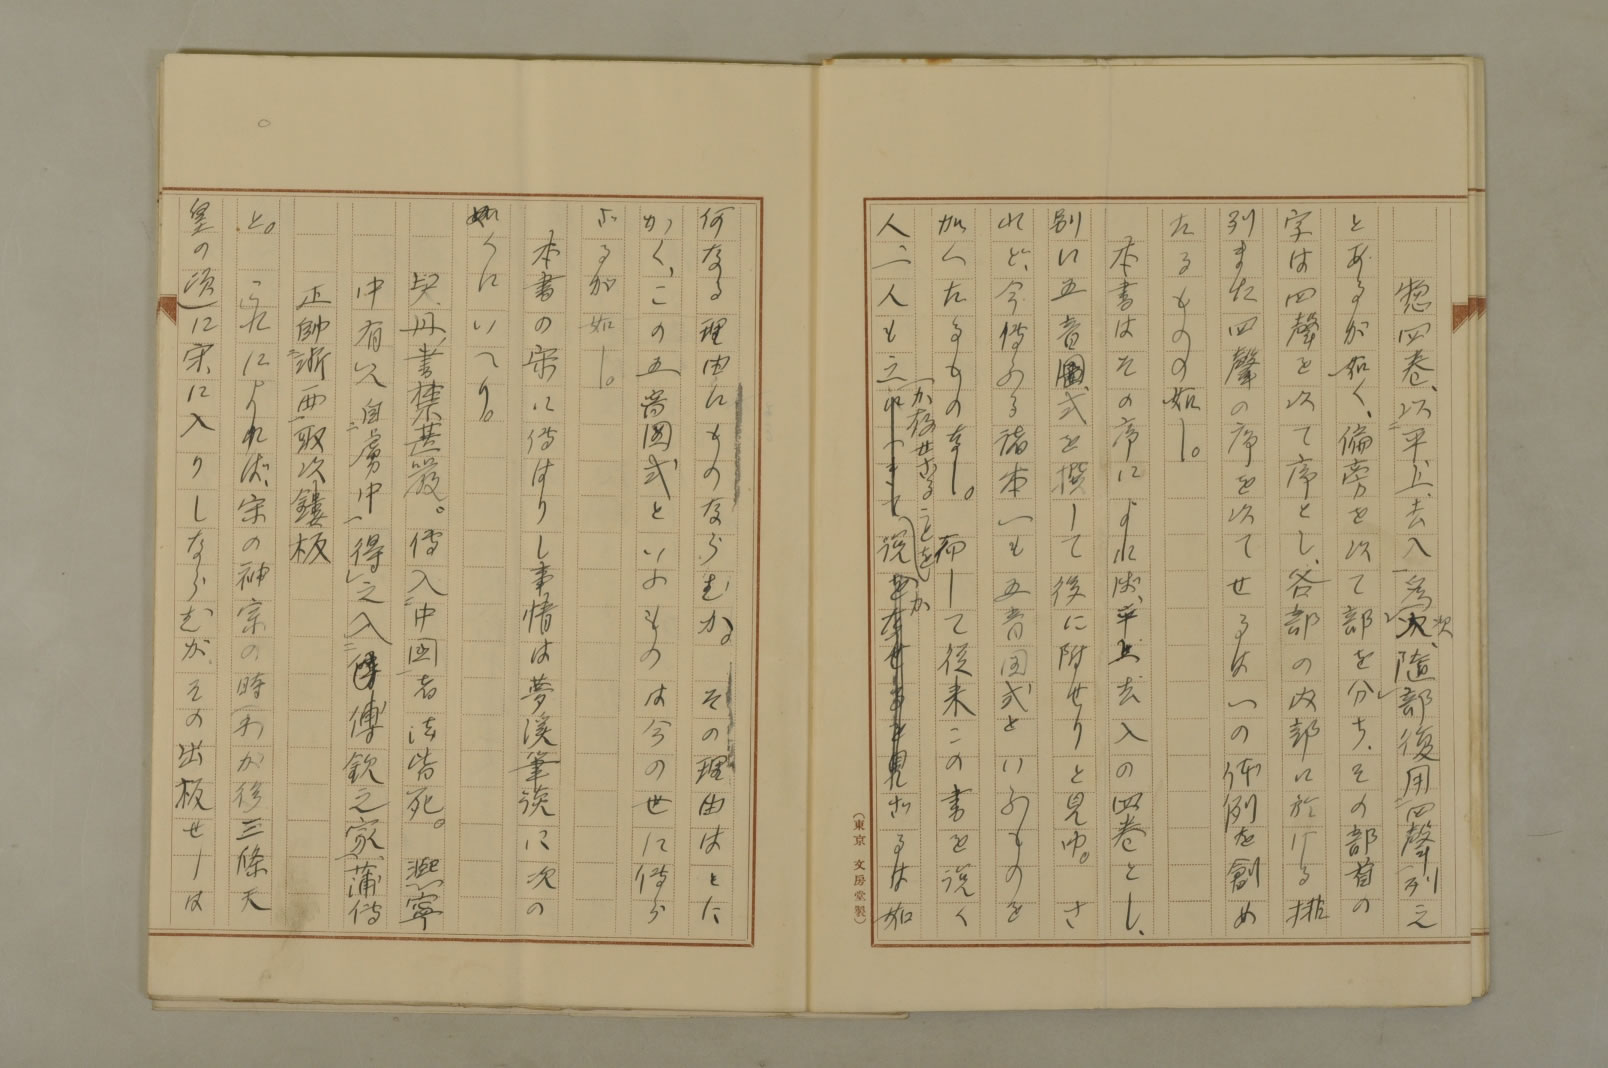 惣四巻、以平上去入為次、隨部復用四聲列之
次
とあるが如く、偏旁を以て部を分ち、その部首の
字は四聲を以て序とし、各部の内部に於ける排
列また四聲の序を以てせるは一の体例を創め
たるものの如し。
本書はその序によれば、平上去入の四巻とし、
別に五音圖式を撰して後に附せりと見ゆ。さ
れど、今傳ふる諸本一も五音図式といふものを
加へたるもの無し。而して従来この書を説く
か存せざることを
人一人も之
説
か
ざるは如
(東京 文房堂製)
何なる理由にものならむか。その理由はとに
かく、この五音図式といふものは今の世に傳ら
ざるが如し。
本書の宋に傳はりし事情は夢溪筆談に次の
如くにいへり。
契丹書禁甚嚴。傳入中国者法皆死。熙寧
中有人自虜中得之入傅欽之家蒲傳
正帥浙西取以鏤板
と。これによれば、宋の神宗の時(わが後三條天
皇の頃)に宋に入りしならむが、その出板せしは